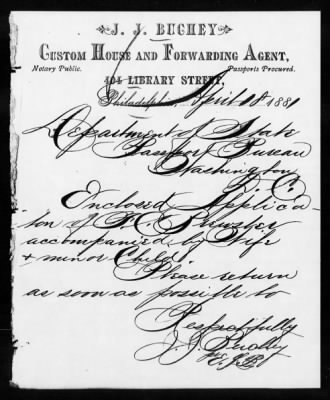 J. J. BUCHEY
CUSTOM HOUSE AND FORWARDING AGENT,
Notary Public. Passports Procured.
404 LIBRARY STREET,
Philadelphia April 18 1881
Department of State
Passport Bureau
Washington
D. C.
Enclosed Applica-
tion of F. C.
accompanied by Wife
& minor Child.
Please return
as soon as possible to
Respectfully
J. J. Buchey